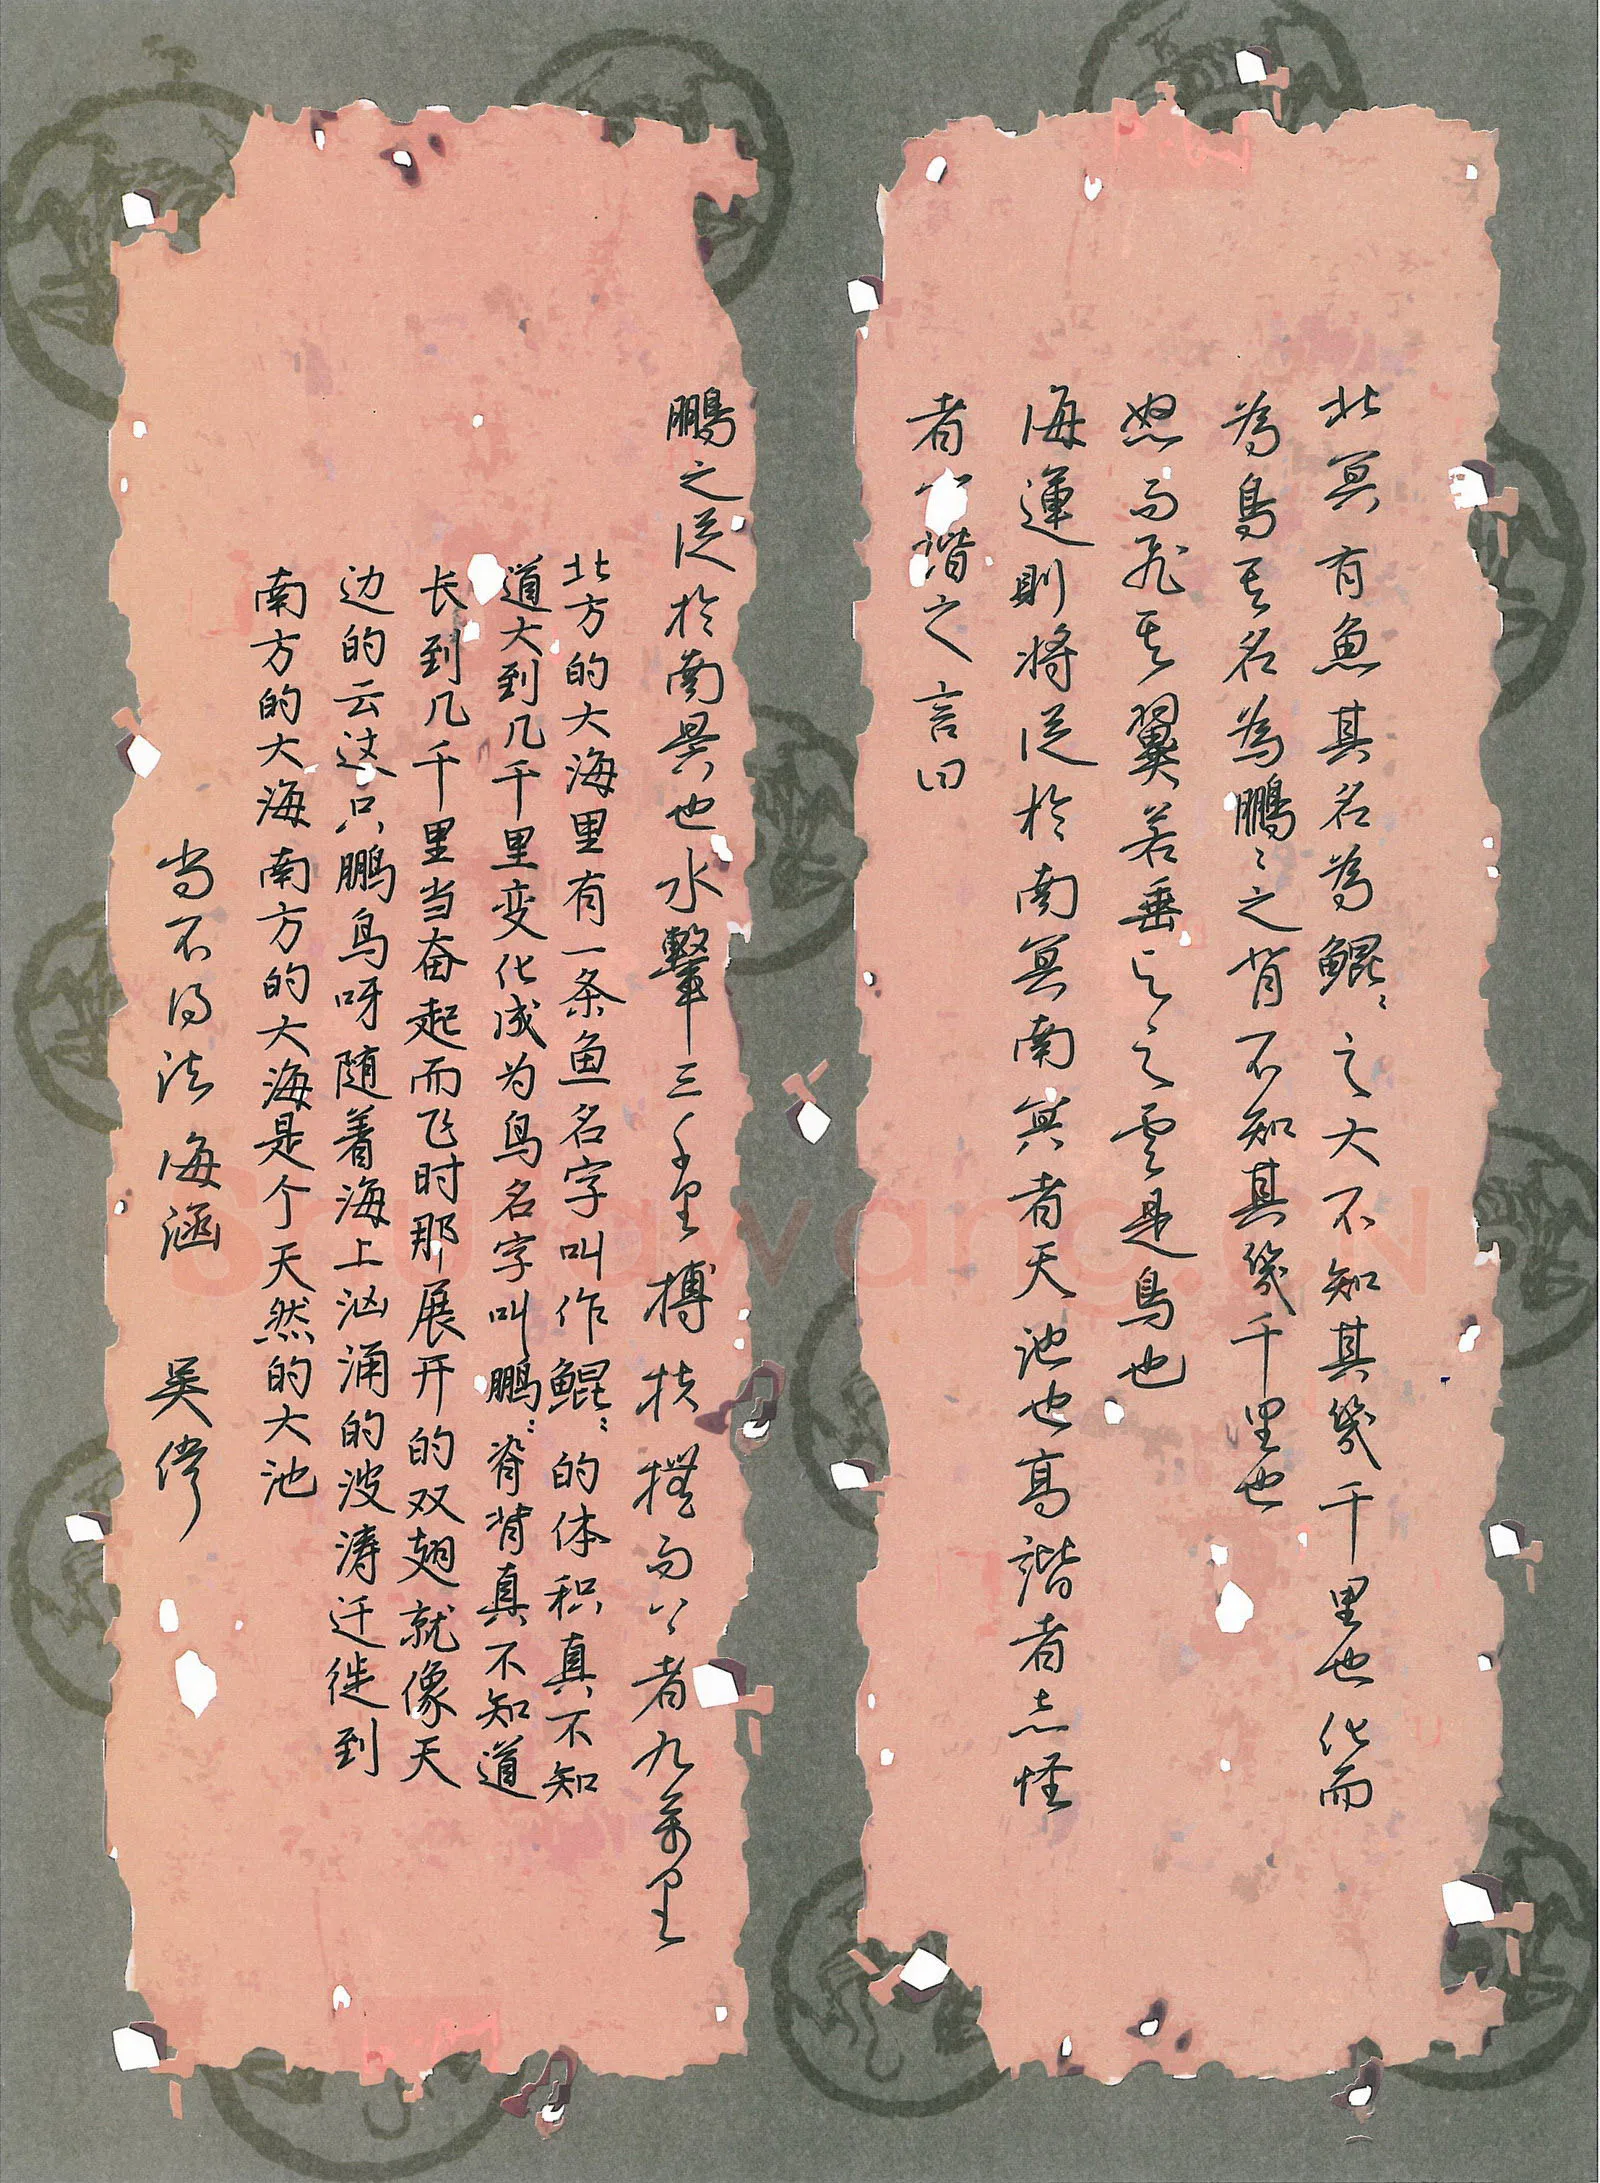 北冥有魚其名為鯤〻之大不知其幾千里也化而
為鳥其名為鵬〻之背不知其幾千里也
怒而飛其翼若垂天之雲是鳥也
海運則將徙於南冥南冥者天池也齊諧者志怪
者也諧之言曰
鵬之徙於南冥也水擊三千里摶扶搖而上者九萬里
北方的大海里有一条鱼名字叫作鲲〻的体积真不知
道大到几千里变化成为鸟名字叫鹏〻脊背真不知道
长到几千里当奋起而飞时那展开的双翅就像天
边的云这只鹏鸟呀随着海上汹涌的波涛迁徙到
南方的大海南方的大海是个天然的大池
尚不得法 海涵 吴